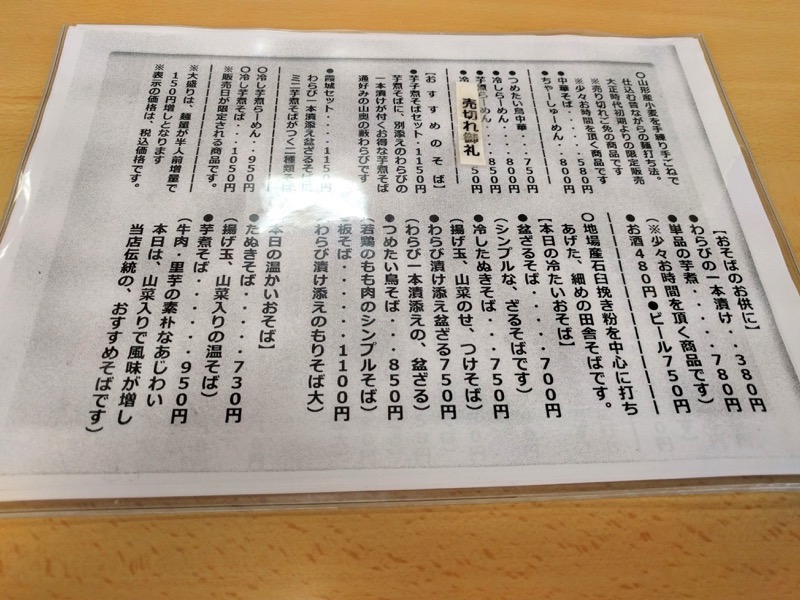 〇山形産小麦を手練り手ごねで
仕込む昔ながらの麺打ち法。
大正時代初期よりの限定販売
※売り切れご免の商品です
※少々お時間を頂く商品です
●中華そば・・・・・580円
●ちゃーしゅーめん・・800円
●つめたい鳥中華・・・750円
●冷しらーめん・・・・800円
●芋煮らーめん・・・850円
●冷
50円
売切れ御礼
【おすすめのそば】
●芋子煮そばセット・1150円
芋煮そばに、別添えのわらびの
一本漬けが付くお得な芋煮そば
通好みの山奥の藪わらびです
●霞城セット・・・・1150円
わらび一本漬添え盆ざるそ
ミニ芋煮そばがつく二種類
〇冷し芋煮らーめん・・950円
〇冷し芋煮そば・・・1050円
※販売日が限定される商品です。
※大盛りは、麺量が半人前増量で
150円増しとなります
※表示の価格は、税込価格です。
【おそばのお供に】
●わらびの一本漬け・・380円
●単品の芋煮・・・・・780円
(※少々お時間を頂く商品です)
●お酒480円●ビール750円
〇地場産石臼挽き粉を中心に打ち
あげた、細めの田舎そばです。
【本日の冷たいおそば】
●盆ざるそば・・・・700円
(シンプルな、ざるそばです)
●冷したぬきそば・・・750円
(揚げ玉、山菜のせ、つけそば)
●わらび漬け添え盆ざる750円
(わらび一本漬添えの、盆ざる)
●つめたい鳥そば・・・850円
(若鶏のもも肉のシンプルそば)
●板そば・・・・・1100円
(わらび漬け添えのもりそば大)
【本日の温かいおそば】
●たぬきそば・・・・・730円
(揚げ玉、山菜入りの温そば)
●芋煮そば・・・・・・950円
(牛肉・里芋の素朴なあじわい
本日は、山菜入りで風味が増し
当店伝統の、おすすめそばです)